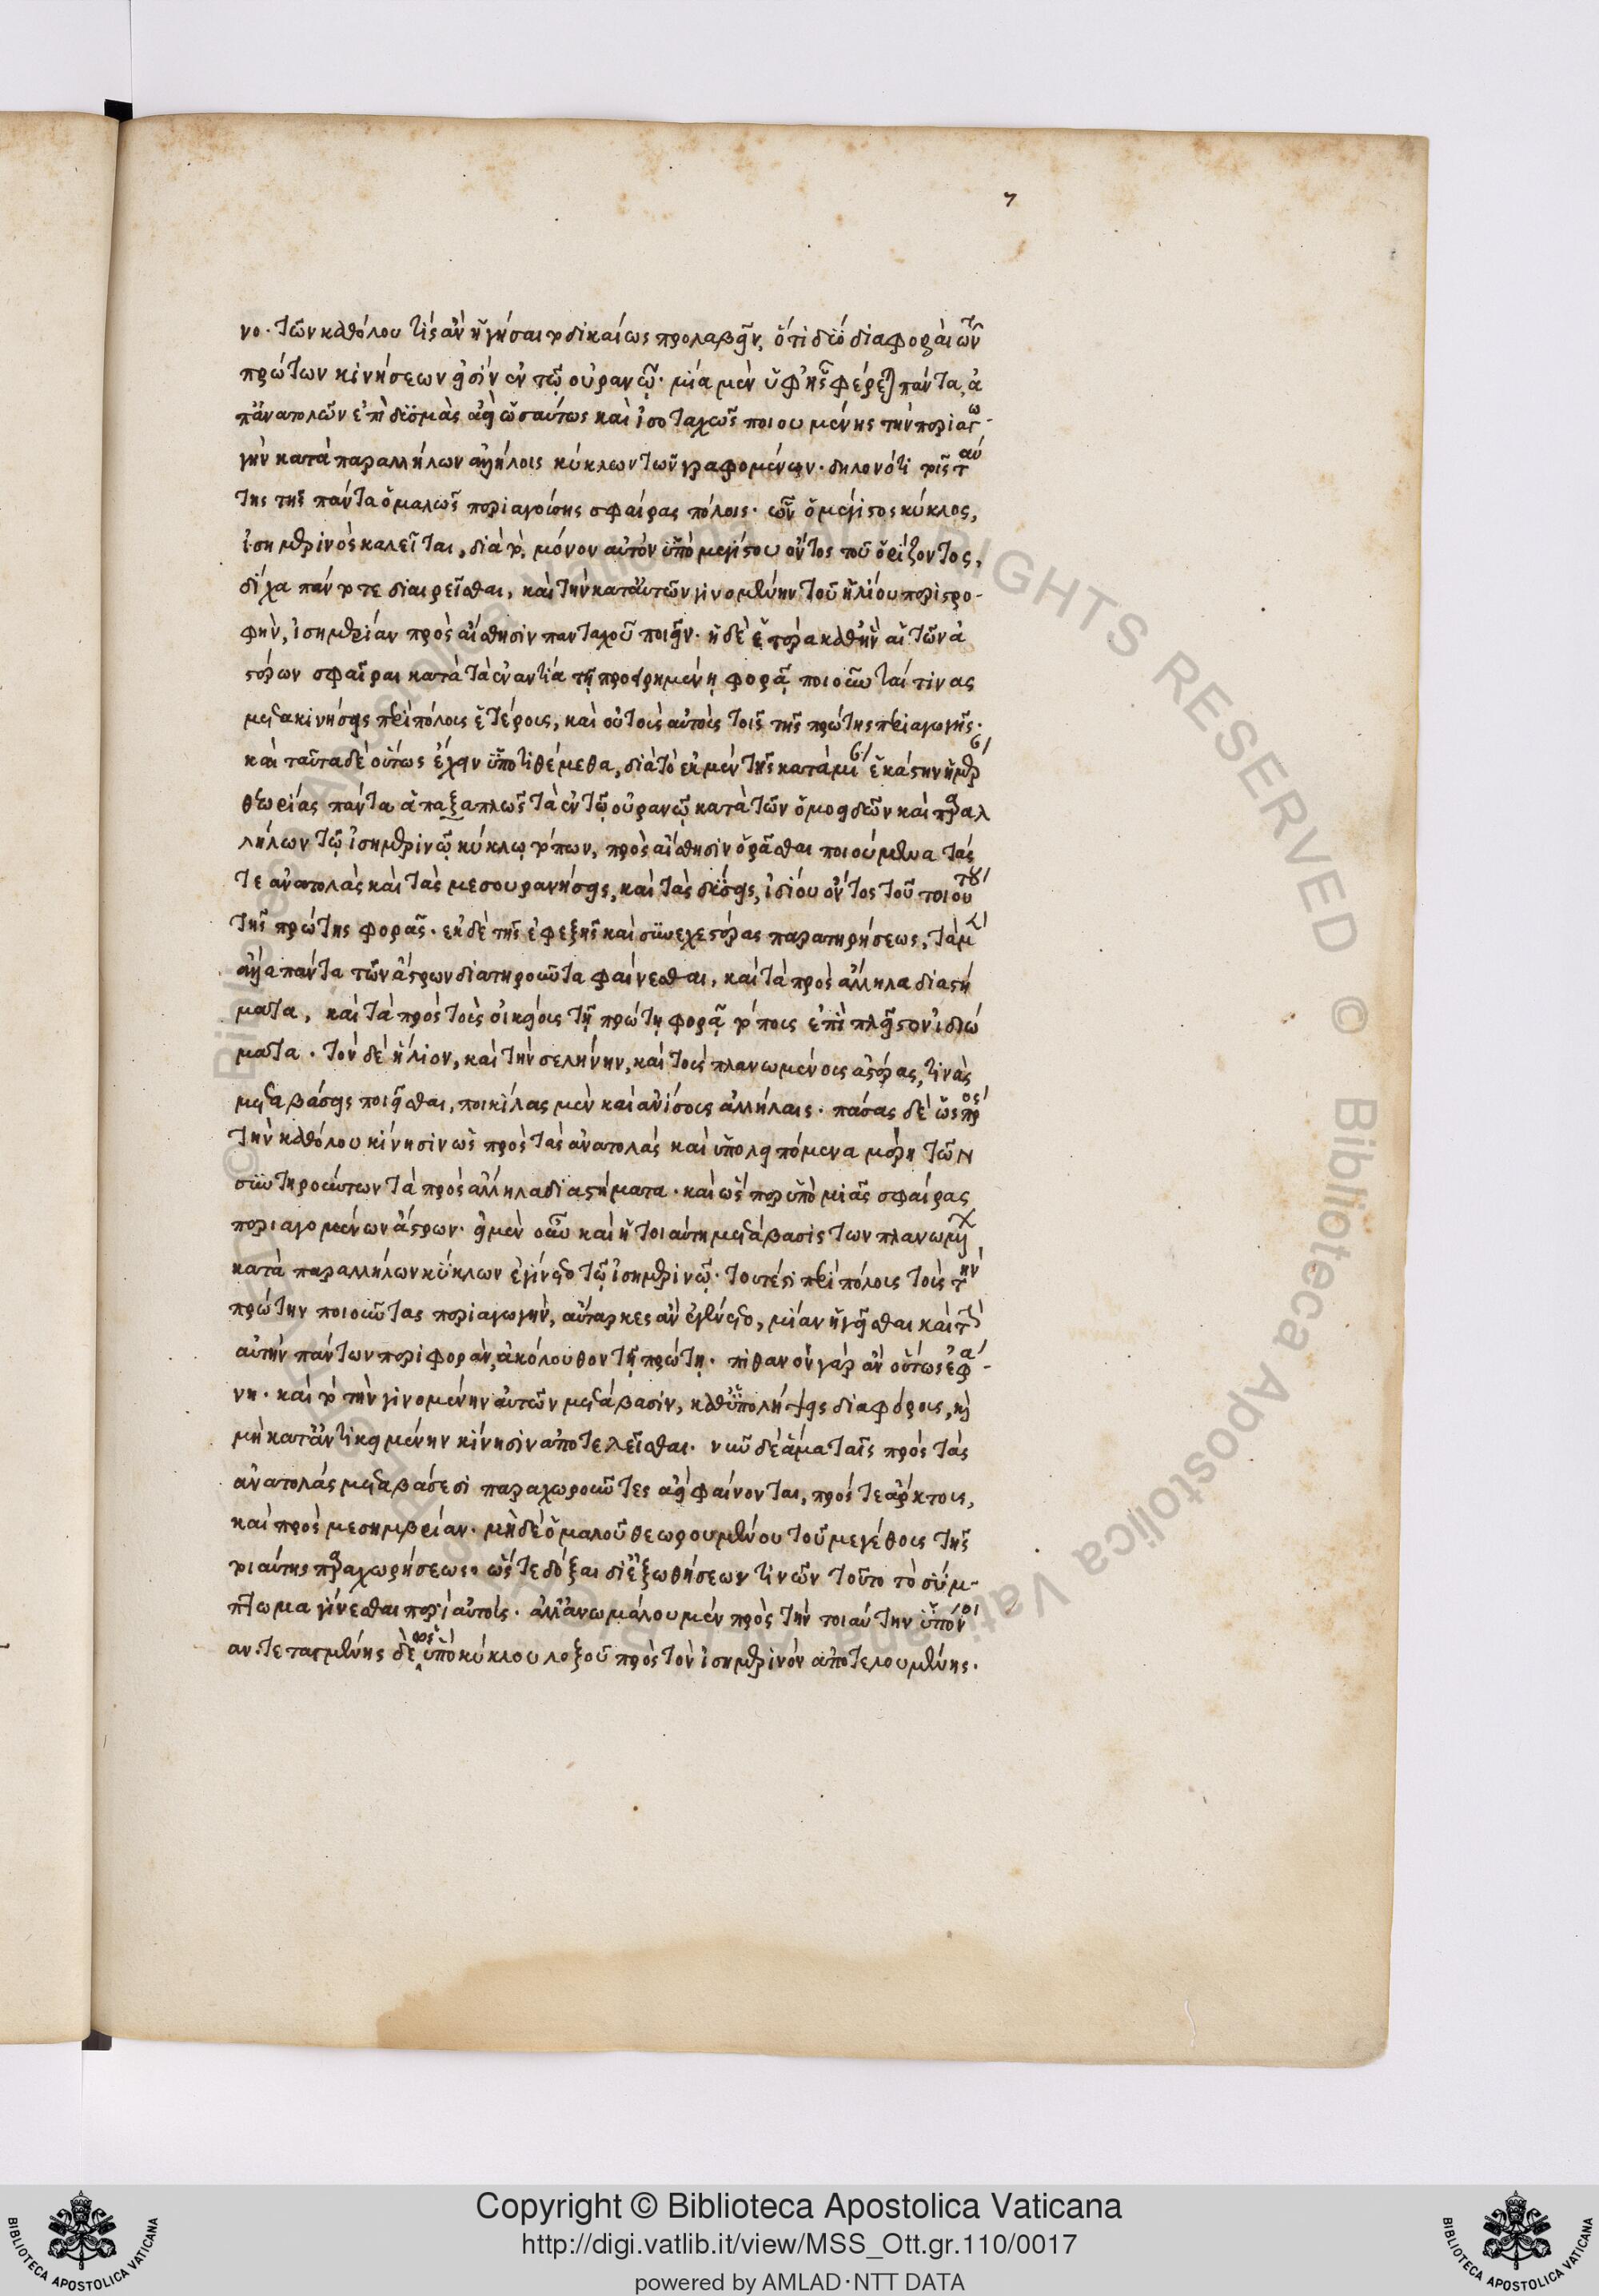 7
νο· τῶν καθόλου τὶς ἂν ἡγήσαιτο δικαίως προλαβεῖν, ὅτι δύο διαφοραὶ τῶν
πρώτων κινήσεών εἰσὶν ἐν τῷ οὐρανῷ· μία μὲν ὑφ' ἧς φέρεται πάντα, ἀ
π' ἀνατολῶν ἐπὶ δυσμὰς ἀεὶ ὡσαύτως καὶ ἰσοταχῶς ποιουμένης τὴν περιαγω-
γὴν κατὰ παραλλήλων ἀλλήλοις κύκλων τῶν γραφομένων· δηλονότι τοῖς ταύ
της τῆς πάντα ὁμαλῶς περιαγούσης σφαίρας πόλοις· ὧν ὁ μέγιστος κύκλος,
ἰσημερινὸς καλεῖται, διὰ τὸ, μόνον αὐτὸν ὑπὸ μεγίστου ὄντος τοῦ ὁρίζοντος,
δίχα πάντοτε διαιρεῖσθαι, καὶ τὴν κατ' αὐτῶν γινομένην τοῦ ἡλίου περιστρο-
φὴν, ἰσημερίαν πρὸς αἴσθησιν πανταχοῦ ποιεῖν· ἡ δὲ ἑτέρα καθ' ἣν αἱ τῶν ἀ
στέρων σφαῖραι κατὰ τὰ ἐναντία τῇ προειρημένῃ φορᾷ ποιοῦνταί τινας
μετακινήσεις περὶ πόλους ἑτέρους, καὶ οὐ τοὺς αὐτοὺς τοῖς τῆς πρώτης περιαγωγῆς·
καὶ ταῦτα δὲ οὕτως ἔχειν ὑποτιθέμεθα, διὰ τὸ ἐκ μὲν τῆς κατὰ μί ἑκάστην ἡμέρ
θεωρίας πάντα ἁπαξαπλῶς τὰ ἐν τῷ οὐρανῷ κατὰ τῶν ὁμοειδῶν καὶ παραλ
λήλων τῷ ἰσημερινῷ κύκλῳ τόπων, πρὸς αἴσθησιν ὁρᾶσθαι ποιούμενα τάς
τε ἀνατολὰς καὶ τὰς μεσουρανήσεις, καὶ τὰς δύσεις, ἰδίου ὄντος τοῦ τοιούτου
τῆς πρώτης φορᾶς· ἐκ δὲ τῆς ἐφεξῆς καὶ συνεχεστέρας παρατηρήσεως, τὰ μὲν
ἄλλα πάντα τῶν ἄστρων διατηροῦντα φαίνεσθαι, καὶ τὰ πρὸς ἄλληλα διαστή
ματα, καὶ τὰ πρὸς τοὺς οἰκείους τῇ πρώτῃ φορᾷ τόπους ἐπὶ πλεῖστον ἰδιώ
ματα. τὸν δὲ ἥλιον, καὶ τὴν σελήνην, καὶ τοὺς πλανωμένους ἀστέρας, τινὰς
μεταβάσεις ποιεῖσθαι, ποικίλας μὲν καὶ ἀνίσους ἀλλήλαις· πάσας δὲ ὡς πρὸς
τὴν καθόλου κίνησιν ὡς πρὸς τὰς ἀνατολὰς καὶ ὑπολειπόμενα μέρη τῶν
συντηρούντων τὰ πρὸς ἄλληλα διαστήματα· καὶ ὥσπερ ὑπὸ μιᾶς σφαίρας
περιαγομένων ἄστρων· εἰ μὲν οὖν καὶ ἡ τοιαύτη μετάβασις τῶν πλανωμ
κατὰ παραλλήλων κύκλων ἐγίνετο τῷ ἰσημερινῷ· τουτέστι περὶ πόλους τοὺς τὴν
πρώτην ποιοῦντας περιαγωγὴν, αὔταρκες ἂν ἐγένετο, μίαν ἡγεῖσθαι καὶ τὴν
αὐτὴν πάντων περιφορὰν, ἀκόλουθον τῇ πρώτῃ· πιθανὸν γὰρ ἂν οὕτως ἐφά-
νη· καὶ τὸ τὴν γινομένην αὐτῶν μετάβασιν, καθ' ὑπολήψεις διαφόρους, καὶ
μὴ κατ' ἀντικειμένην κίνησιν ἀποτελεῖσθαι· νῦν δὲ ἅμα ταῖς πρὸς τὰς
ἀνατολὰς μεταβάσεσι παραχωροῦντες ἀεὶ φαίνονται, πρός τε ἄρκτους,
καὶ πρὸς μεσημβρίαν· μὴ δὲ ὁμαλοῦ θεωρουμένου τοῦ μεγέθους τῆς
τοιαύτης παραχωρήσεως· ὥστε δόξαι δι' ἐξωθήσεων τινῶν τοῦτο τὸ σύμ-
πτωμα γίνεσθαι περὶ αὐτούς· ἀλλ' ἀνωμάλου μὲν πρὸς τὴν τοιαύτην ὑπόνοι
αν· τεταγμένης δὲ ὡς ὑπὸ κύκλου λοξοῦ πρὸς τὸν ἰσημερινὸν ἀποτελουμένης.
© Biblioteca Apostolica Vaticana ALL RIGHTS RESERVED © Biblioteca Apostolica Vaticana
Copyright © Biblioteca Apostolica Vaticana
http://digi.vatlib.it/view/MSS_Ott.gr.110/0017
powered by AMLAD·NTT DATA
BIBLIOTECA APOSTOLICA VATICANA
BIBLIOTECA APOSTOLICA VATICANA